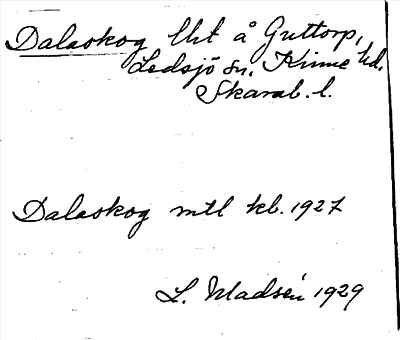 Dalaskog lht å Guttorp,
Ledsjö sn. Kinne hd.
Skarab. l.
Dalaskog mtl kb. 1927
L. Madsén 1929